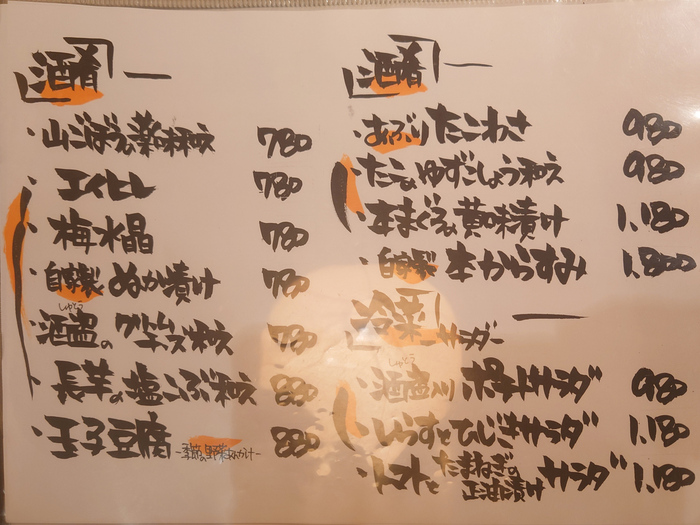 「酒肴」
・山ごぼうの薬味和え 780
・エイヒレ 780
・梅水晶 780
・自家製ぬか漬け 780
しゅとう
・酒盗のクリームチーズ和え 780
・長芋の塩こぶ和え 880
・玉子豆腐 -季節の野菜あんかけ- 880
「酒肴」
・あぶりたこわさ 980
・たこのゆずこしょう和え 980
・本まぐろの黄味漬け 1.180
・自家製本からすみ 1.800
「冷菜」-サラダ-
しゅとう
・酒盗入りポテトサラダ 980
・しらすとひじきサラダ 1.180
・トマトとたまねぎの正油漬けサラダ 1.180